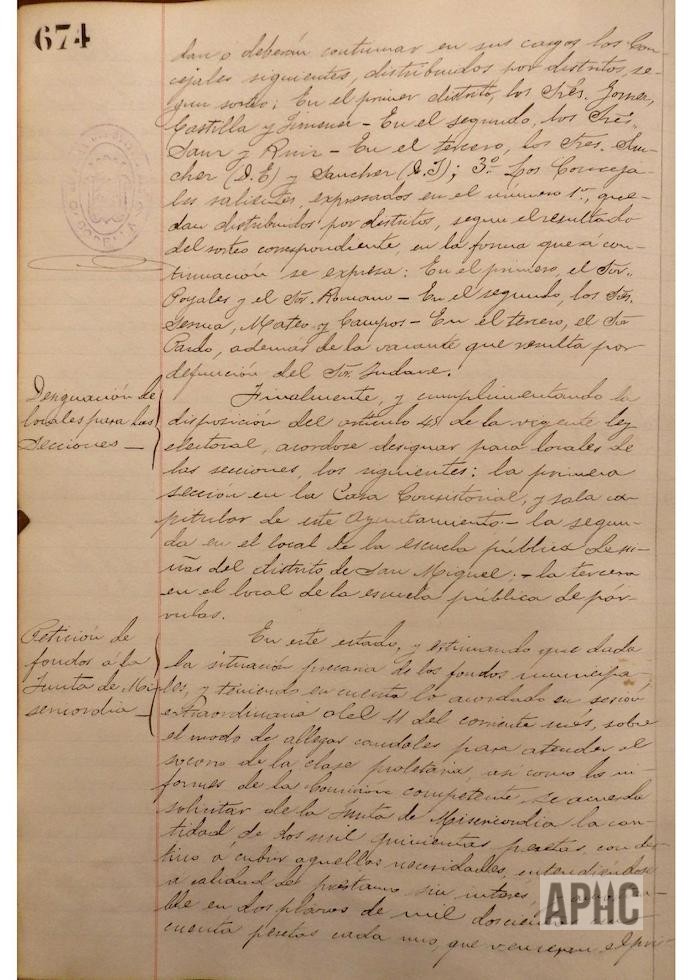 674
dan o deberán continuar en sus cargos los Con-
cejales siguientes, distribuidos por distritos, se-
gun sorteo: En el primer distrito, los Sres.
Castilla y Jimenez - En el segundo, los Sres
Sanz y Ruiz - En el tercero, los Sres. Sán-
chez (D. E) y Sanchez (D. J); 3º Los Conceja-
les salientes, expresados en el número 1º, que-
dan distribuidos por distritos, segun el resultado
del sorteo correspondiente, en la forma que á con-
tinuación se expresa: En el primero, el Sor.
Poyales y el Sor. Romano - En el segundo, los Sres.
Serna, Mateo y Campos - En el tercero, el Sor
Pardo, además de la vacante que resulta por
defunción del Sor.
Designación de
locales para las
Secciones -
Finalmente, y cumplimentando la
disposición del artículo 45 de la vigente ley
electoral, acordose designar para locales de
las secciones, los siguientes: la primera
sección en la Casa Consistorial, y sala ca-
pitular de este Ayuntamiento - la segun-
da en el local de la escuela pública de ni-
ñas del distrito de San Miguel; - la tercera
en el local de la escuela pública de pár-
vulos.
Petición de
fondos á la
Junta de Mi-
sericordia -
En este estado, y estimando que dada
la situación precaria de los fondos municipa-
les, y teniendo en cuenta lo acordado en sesión
extraordinaria del 11 del corriente mes, sobre
el modo de allegar caudales para atender al
socorro de la clase proletaria, así como los in-
formes de la Comisión competente, se acuerda
solicitar de la Junta de Misericordia la can-
tidad de dos mil quinientas pesetas con des-
tino á cubrir aquellas necesidades, entendiéndose
á calidad de préstamo sin interes
ble en dos plazos de mil doscientas cin-
cuenta pesetas cada uno, que venceran el pri-
APHC